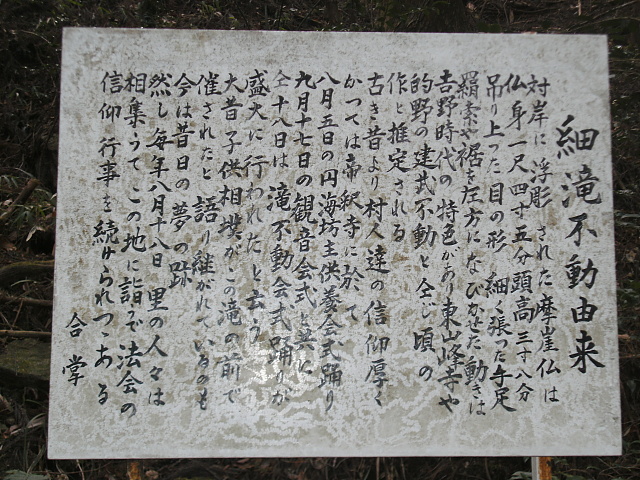 細滝不動由来
対岸に浮彫された摩崖仏は
仏身一尺四寸五分頭高三寸八分
吊り上った目の形 細く張った手足
絹索や裾を左方になびかせた動きは
吉野時代の特色があり東山峰寺や
的野の建武不動と仝じ頃の
作と推定される
古き昔より村人達の信仰厚く
かつては帝釈寺に於て
八月五日の円海坊主供養会式踊り
九月十七日の観音会式と共に
仝十八日は滝不動会式踊りが
盛大に行われたと云う
大昔子供相撲がこの滝の前で
催されたと語り継がれているのも
今は昔日の夢の跡
然し毎年八月十八日 里の人々は
相集うてこの地に詣で法会の
信仰行事を続けられつゝある
合掌